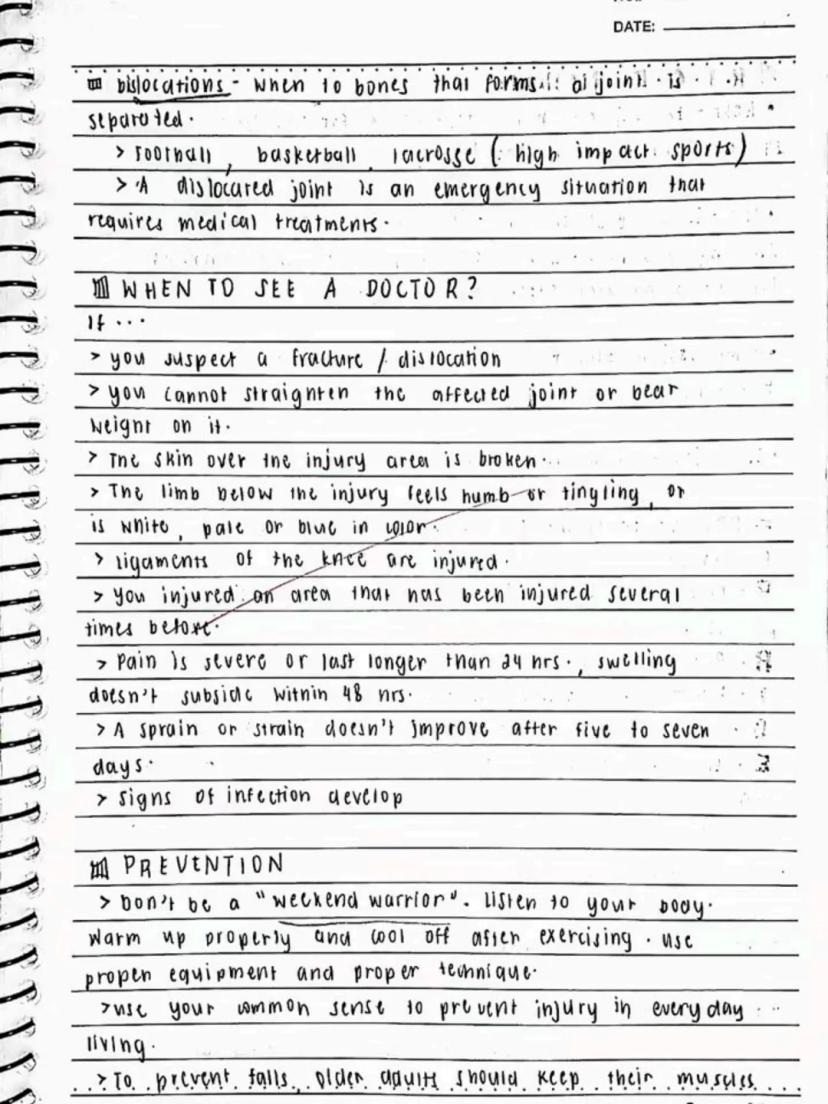 DATE:
Dislocations - when to bones that forms a joint is
separated.
> Football, basketball, lacrosse (high impact sports)
> A dislocated joint is an emergency situation that
requires medical treatments.
WHEN TO SEE A DOCTOR?
If ...
> you suspect a fracture / dislocation
> you cannot straighten the affected joint or bear
weight on it.
> The skin over the injury area is broken.
> The limb below the injury feels numb or tingling, or
is white, pale or blue in color.
> ligaments of the knee are injured.
> You injured an area that has been injured several
times before.
> Pain is severe or last longer than 24 hrs., swelling
doesn't subside within 48 hrs.
> A sprain or strain doesn't improve after five to seven
days.
> signs of infection develop
PREVENTION
> Don't be a "weekend warrior". Listen to your body.
Warm up properly and cool off after exercising. use
proper equipment and proper technique.
> use your common sense to prevent injury in everyday
living.
> To prevent falls, older adults should keep their muscles